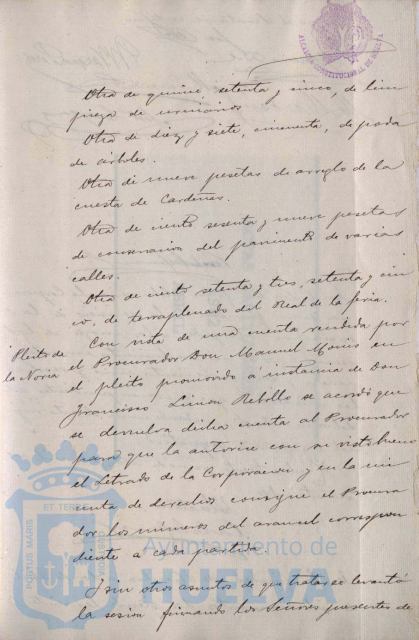 ALCALDIA CONSTITUCIONAL DE HUELVA
Otra de quince, setenta y cinco, de lim
pieza de urinarios
Otra de diez y siete, cincuenta, de poda
de árboles.
Otra de nueve pesetas de arreglo de la
cuesta de Cardenas.
Otra de ciento sesenta y nueve pesetas
de conservacion del pavimento de varias
calles.
Otra de ciento setenta y tres, setenta y cin
co, de terraplenado del Real de la feria.
Pleito de
la Noria
Con vista de una cuenta rendida por
el Procurador Don Manuel en
el pleito promovido á instancia de Don
Francisco Limon Rebollo se acordó que
se devuelva dicha cuenta al Procurador
para que la autorice con su visto bueno
el Letrado de la Corporacion y en la mi
nuta de derechos consigne el Procura
dor los números del arancel correspon
diente a cada partida
Y sin otros asuntos de que tratar se levantó
la sesion firmando los Señores presentes de
PORTUS MARIS
ET TERRAE
CUSTODIA
Ayuntamiento de
HUELVA